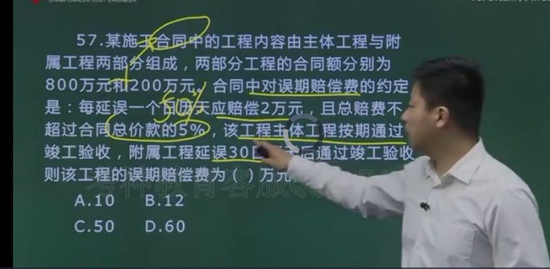 57.某施工合同中的工程内容由主体工程与附
属工程两部分组成，两部分工程的合同额分别为
800万元和200万元。合同中对误期赔偿费的约定
是：每延误一个日历天应赔偿2万元，且总赔费不
超过合同总价款的5%，该工程主体工程按期通过
竣工验收，附属工程延误30日 后通过竣工验收
则该工程的误期赔偿费为（）万元
A.10 B.12
C.50 D.60
50%